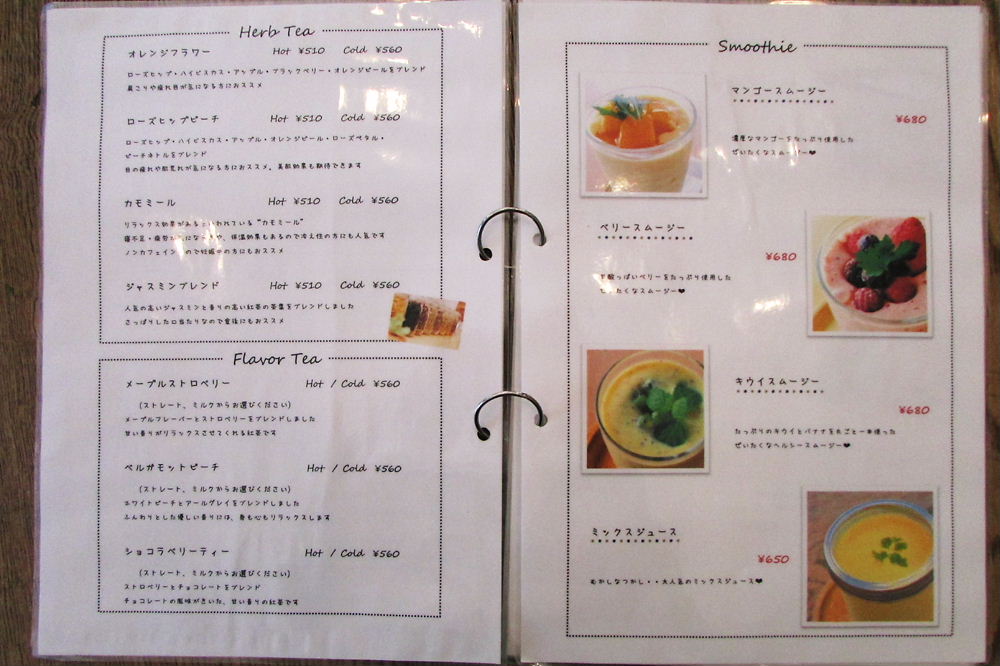 Herb Tea
オレンジフラワー Hot ¥510 Cold ¥560
ローズヒップ・ハイビスカス・アップル・ブラックベリー・オレンジピールをブレンド
肩こりや疲れ目が気になる方におススメ
ローズヒップピーチ Hot ¥510 Cold ¥560
ローズヒップ・ハイビスカス・アップル・オレンジピール・ローズペタル・
ピーチネトルをブレンド
目の疲れや肌荒れが気になる方におススメ。美肌効果も期待できます
カモミール Hot ¥510 Cold ¥560
リラックス効果がある われている"カモミール"
寝不足・疲労 、保温効果もあるので冷え性の方にも人気です
ノンカフェイン ので妊娠中の方にもおススメ
ジャスミンブレンド Hot ¥510 Cold ¥560
人気の高いジャスミンと香りの高い紅茶の茶葉をブレンドしました
さっぱりした口当たりなので食後にもおススメ
Flavor Tea
メープルストロベリー Hot / Cold ¥560
(ストレート、ミルクからお選びください)
メープルフレーバーとストロベリーをブレンドしました
甘い香りがリラックスさせてくれる紅茶です
ベルガモットピーチ Hot / Cold ¥560
(ストレート、ミルクからお選びください)
ホワイトピーチとアールグレイをブレンドしました
ふんわりとした優しい香りには、身も心もリラックスします
ショコラベリーティー Hot / Cold ¥560
(ストレート、ミルクからお選びください)
ストロベリーとチョコレートをブレンド
チョコレートの風味がきいた、甘い香りの紅茶です
Smoothie
マンゴースムージー
¥680
濃厚なマンゴーをたっぷり使用した
ぜいたくなスムージー❤
ベリースムージー
¥680
甘酸っぱいベリーをたっぷり使用した
ぜいたくなスムージー❤
キウイスムージー
¥680
たっぷりのキウイとバナナを丸ごと一本使った
ぜいたくなヘルシースムージー❤
ミックスジュース
¥650
むかしなつかし・・大人気のミックスジュース❤